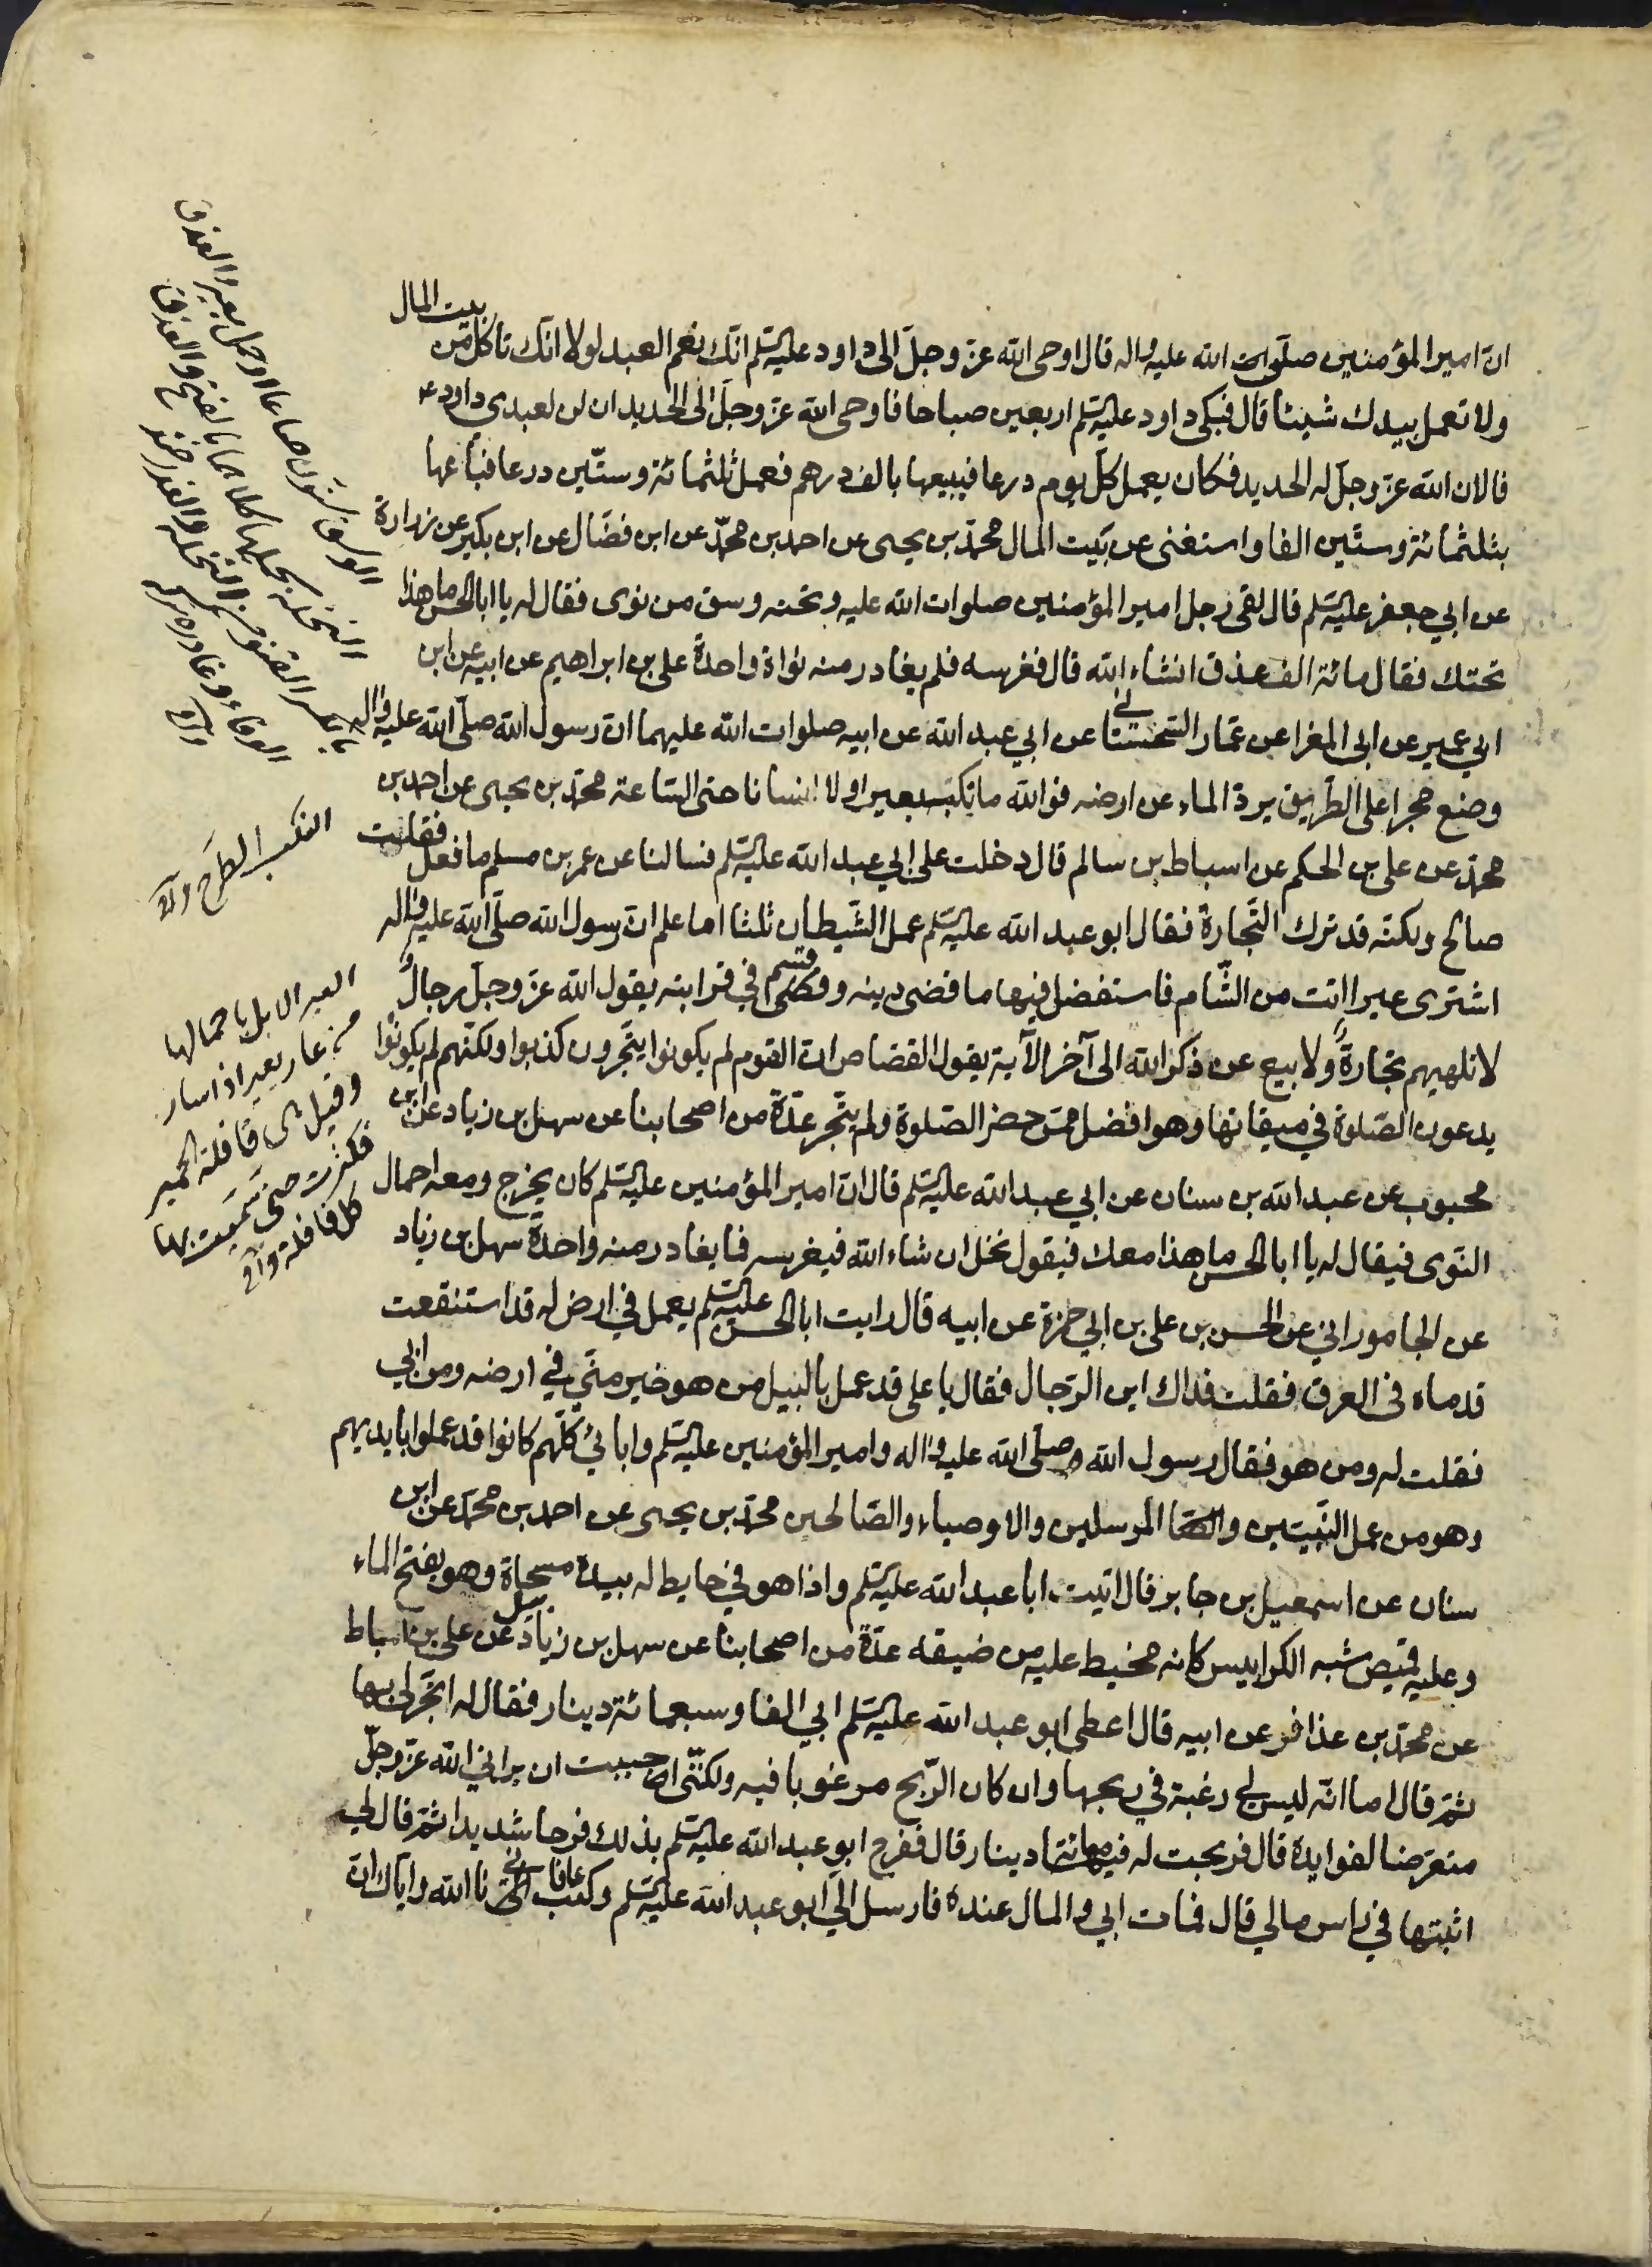 ان امير المؤمنين صلوات الله عليه واله قال اوحى الله عز وجل الى داود عليه السلم انك نعم العبد لولا انك تاكل من بيت المال
ولا تعمل بيدك شيئا قال فبكى داود عليه السلم اربعين صباحا فاوحى الله عز وجل الى الحديد ان لن لعبدى داود ع
فالان الله عز وجل له الحديد فكان يعمل كل يوم درعا فيبيعها بالف درهم فعمل ثلثمائة وستين درعا فباعها
بثلثمائة وستين الفا واستغنى عن بيت المال محمد بن يحيى عن احمد بن محمد عن ابن فضال عن ابن بكير عن زرارة
عن ابي جعفر عليه السلم قال لقى رجل امير المؤمنين صلوات الله عليه وتحته وسق من نوى فقال له يا ابا الحسن ما هذا
تحتك فقال مائة الف عذق انشاء الله قال فغرسه فلم يغادر منه نواة واحدة على بن ابراهيم عن ابيه عن ابن
ابي عمير عن ابى المغرا عن عمار السجستاني عن ابي عبد الله عن ابيه صلوات الله عليهما ان رسول الله صلى الله عليه واله
وضع حجرا على الطريق يرد الماء عن ارضه فوالله ما نكب بعيرا ولا انسانا حتى الساعة محمد بن يحيى عن احمد بن
محمد عن على بن الحكم عن اسباط بن سالم قال دخلت على ابي عبد الله عليه السلم فسالنا عن عمر بن مسلم ما فعل فقلت
صالح ولكنه قد ترك التجارة فقال ابو عبد الله عليه السلم عمل الشيطان ثلثا اما علم ان رسول الله صلى الله عليه واله
اشترى عيرا اتت من الشام فاستفضل فيها ما قضى دينه وقسم في قرابته يقول الله عز وجل رجال
لا تلهيهم تجارة ولا بيع عن ذكر الله الى آخر الآية يقول القصاص ان القوم لم يكونوا يتجرون كذبوا ولكنهم لم يكونوا
يدعون الصلوة في ميقاتها وهو افضل ممن حضر الصلوة ولم يتجر عدة من اصحابنا عن سهل بن زياد عن ابن
محبوب عن عبد الله بن سنان عن ابي عبد الله عليه السلم قال ان امير المؤمنين عليه السلم كان يخرج ومعه احمال
النوى فيقال له يا ابا الحسن ما هذا معك فيقول نخل ان شاء الله فيغرسه فما يغادر منه واحدة سهل بن زياد
عن الجاموراني عن الحسن بن على بن ابي حمزة عن ابيه قال رايت ابا الحسن عليه السلم يعمل في ارض له قد استنقعت
قدماه فى العرق فقلت فداك اين الرجال فقال يا على قد عمل بالبيل من هو خير مني في ارضه ومن ابي
فقلت له ومن هو فقال رسول الله صلى الله عليه واله وامير المؤمنين عليه السلم وابائي كلهم كانوا قد عملوا بايديهم
وهو من عمل النبيين والمرسلين والاوصياء والصالحين محمد بن يحيى عن احمد بن محمد عن ابن
سنان عن اسمعيل بن جابر قال اتيت ابا عبد الله عليه السلم واذا هو في حايط له بيده مسحاة وهو يفتح الماء
وعليه قميص شبه الكرابيس كانه مخيط عليه من ضيقه عدة من اصحابنا عن سهل بن زياد عن على بن اسباط
عن محمد بن عذافر عن ابيه قال اعطى ابو عبد الله عليه السلم ابي الفا وسبعمائة دينار فقال له اتجر لى بها
ثم قال اما انه ليس لي رغبة في ربحها وان كان الربح مرغوبا فيه ولكني احببت ان يراني الله عز وجل
متعرضا لفوايده قال فربحت له فيها مائة دينار قال ففرح ابو عبد الله عليه السلم بذلك فرحا شديدا ثم قال لي
اثبتها في راس مالي قال فمات ابي والمال عنده فارسل الي ابو عبد الله عليه السلم وكتب عافانا الله واياك ان
الوسق ستون صاعا او حمل بعير العذق
النخلة بحملها
بالكسر القنو من النخلة
النكب الطرح
العير الابل باحمالها
من عار يعير اذا سار
وقيل هى قافلة الحمير
فكثرت حتى سميت بها
كل قافلة